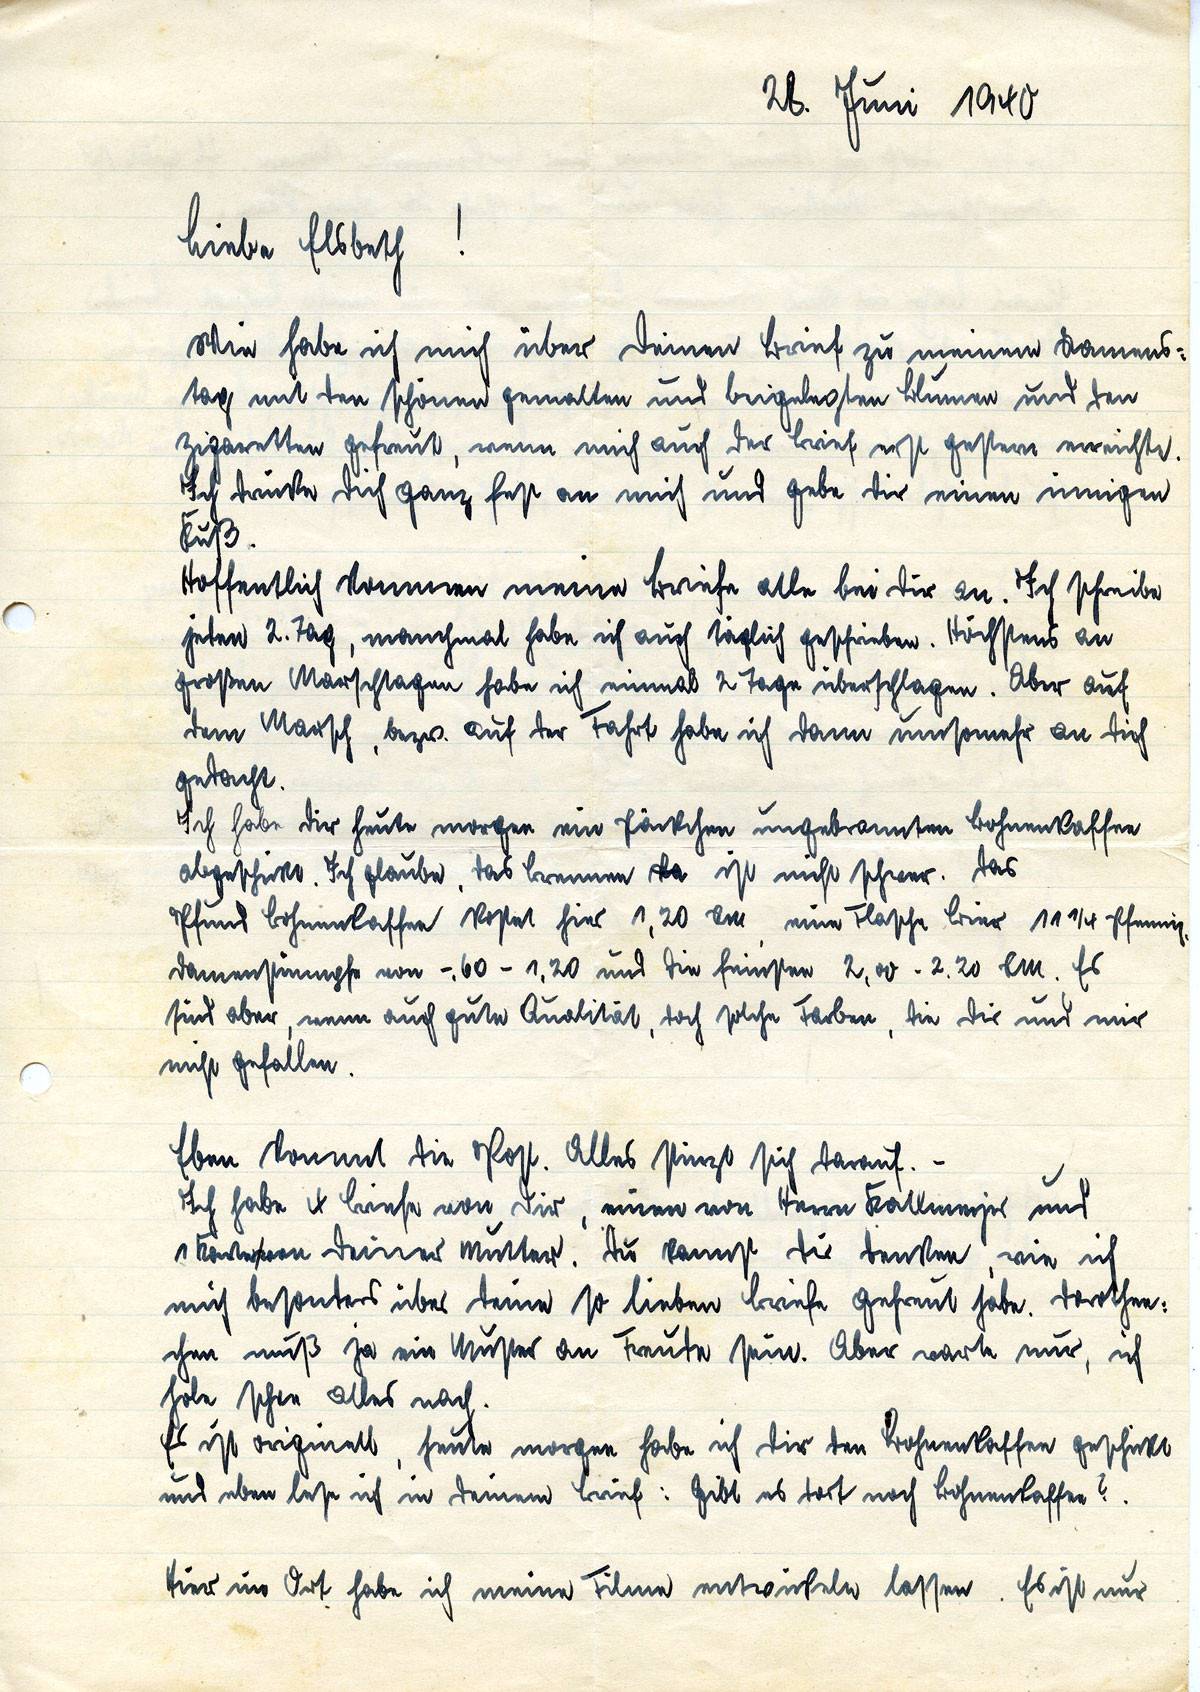 28. Juni 1940
Liebe Elsbeth !
Wie habe ich mich über Deinen Brief zu meinem Namens-
tag mit den schönen gemalten und beigelegten Blumen und den
Zigaretten gefreut, wenn mich auch der Brief erst gestern erreichte.
Ich drücke Dich ganz fest an mich und gebe Dir einen innigen
Kuß.
Hoffentlich kommen meine Briefe alle bei Dir an. Ich schreibe
jeden 2. Tag, manchmal habe ich auch täglich geschrieben. Höchstens an
großen Marschtagen habe ich einmal 2 Tage überschlagen. Aber auf
dem Marsch, bezw. auf der Fahrt habe ich dann umsomehr an Dich
gedacht.
Ich habe Dir heute morgen ein Päckchen ungebrannten Bohnenkaffee
abgeschickt. Ich glaube, das Brennen ist nicht schwer. Das
Pfund Bohnenkaffee kostet hier 1,20 RM, eine Flasche Bier 11 1/4 Pfennig.
Damenstrümpfe von -,60 - 1,20 und die feinsten 2,00 - 2.20 RM. Es
sind aber, wenn auch gute Qualität, doch solche Farben, die Dir und mir
nicht gefallen.
Eben kommt die Post. Alles stürzt sich darauf. -
Ich habe 4 Briefe von Dir, einen von Herrn Kallmeyer und
1 Karte von Deiner Mutter. Du kannst Dir denken, wie ich
mich besonders über Deine so lieben Briefe gefreut habe. Dorothee-
chen muß ja ein Muster an Freude sein. Aber warte nur, ich
hole schon alles nach.
Es ist originell, heute morgen habe ich Dir den Bohnenkaffee geschickt
und eben lese ich in Deinem Brief: Gibt es dort noch Bohnenkaffee?.
Hier im Ort habe ich meine Filme entwickeln lassen. Es ist nur